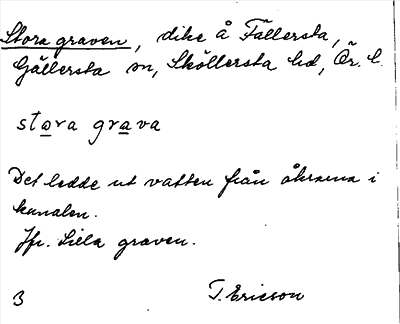 Stora graven, dike å Fällersta,
Gällersta sn, Sköllersta hd, Ör. l.
stora grava
Det ledde ut vatten från åkrarna i
kanalen.
Jfr. Lilla graven.
3 T. Ericson